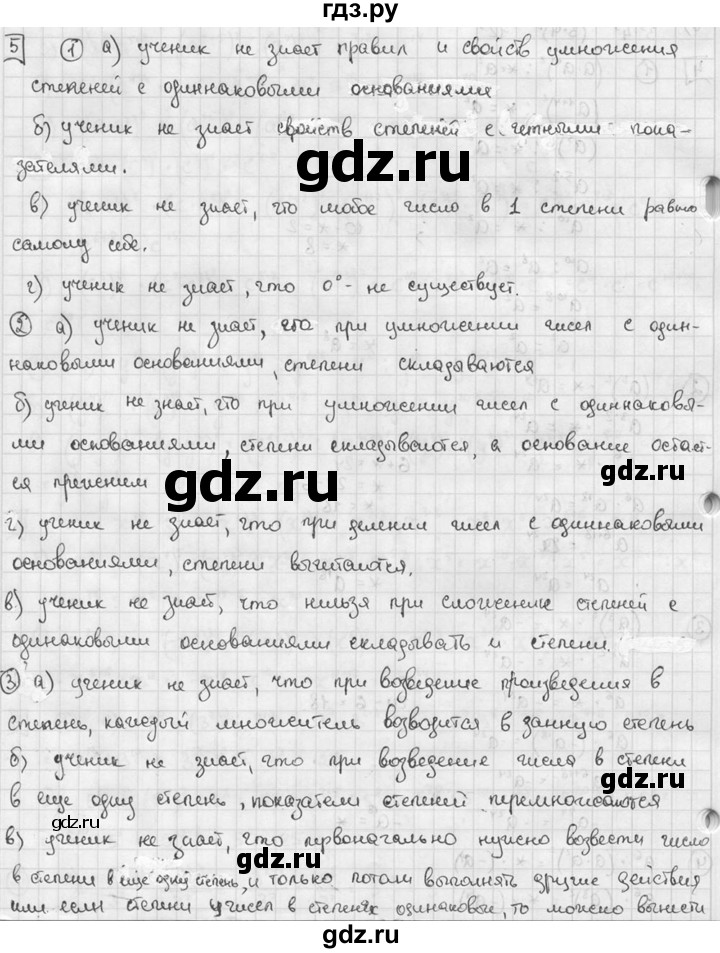 гдз.ру
5 1 а) ученик не знает правил и свойств умножения
степеней с одиннаковыми основаниями
б) ученик не знает свойств степеней с четными пока-
зателями.
gdz.ru
в) ученик не знает, что любое число в 1 степени равно
самому себе.
г) ученик не знает, что 0⁰ - не существует.
2 а) ученик не знает, что при умножении чисел с один-
наковыми основаниями, степени складываются
б) ученик не знает, что при умножении чисел с одиннаковы-
ми основаниями, степени складываются, а основание остает-
ся прежним
gdz.ru
gdz.ru
г) ученик не знает, что при делении чисел с одиннаковыми
основаниями, степени вычитаются.
в) ученик не знает, что нельзя при сложение степеней с
одинаковыми основаниями складывать и степени.
3 а) ученик не знает, что при возведение произведения в
степень, каждый множитель возводится в данную степень
б) ученик не знает, что при возведение числа в степени
в еще одну степень, показатели степеней перемножаются
gdz.ru
gdz.ru
в) ученик не знает, что первоначально нужно возвести число
в степени в еще одну степень, и только потом выполнять другие действия
gdz.ru
или если степени у чисел в степенях одинаковые, то можно вынести
gdz.ru
gdz.ru